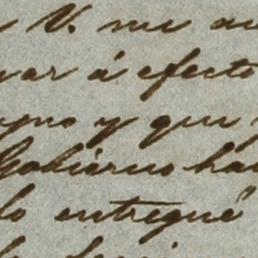 V. me au
var á efecto
y que
Gobierno ha
lo entregué